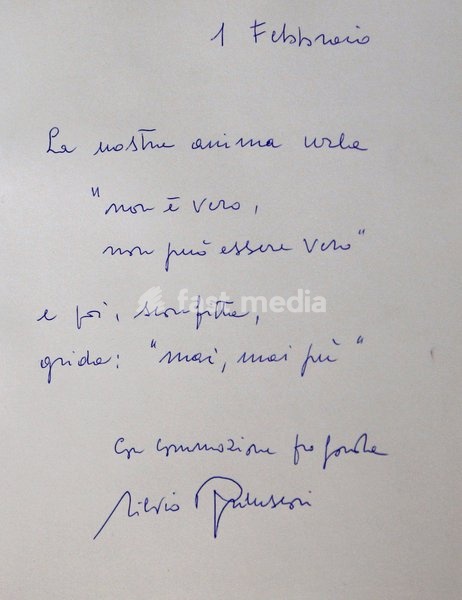 1 Febbraio
La nostra anima urla
"non è vero,
non può essere vero"
fast media
e poi, sconfitta,
grida: "mai, mai più"
Con commozione profonda
Silvio Berlusconi